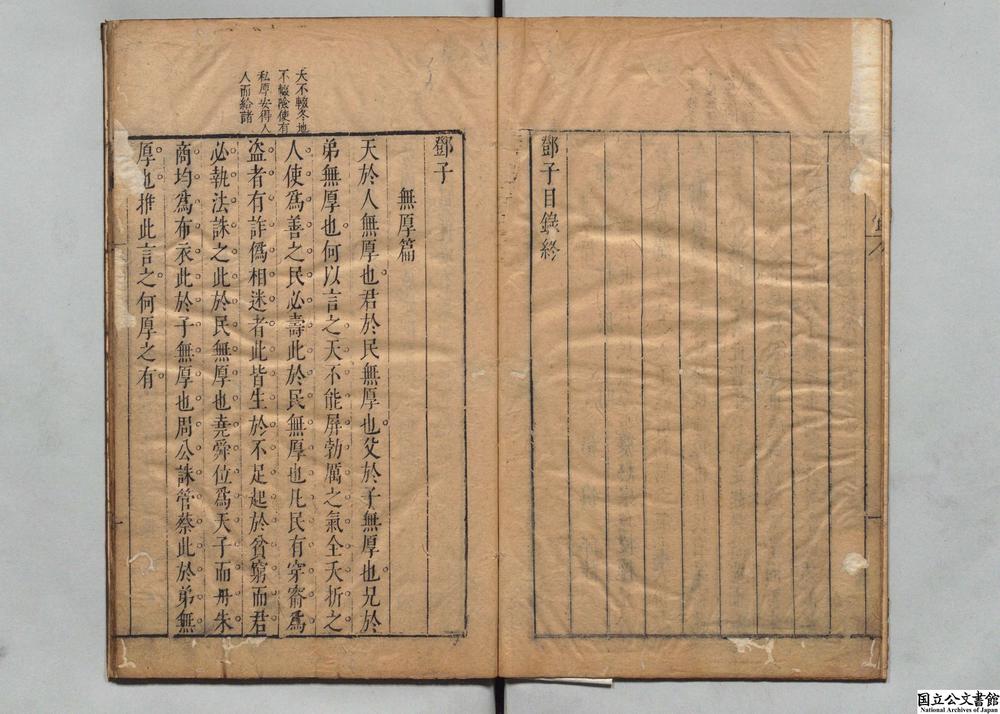 鄧子目錄終
鄧子
無厚篇
天於人無厚也君於民無厚也父於子無厚也兄於
弟無厚也何以言之天不能屏勃厲之氣全夭折之
人使爲善之民必壽此於民無厚也凡民有穿窬爲
盜者有詐僞相迷者此皆生於不足起於貧窮而君
必執法誅之此於民無厚也堯舜位爲天子而丹朱
商均爲布衣此於子無厚也周公誅管蔡此於弟無
厚也推此言之何厚之有
天不輟冬地
不輟險使有
私厚安得人
人而給諸
国立公文書館
National Archives of Japan